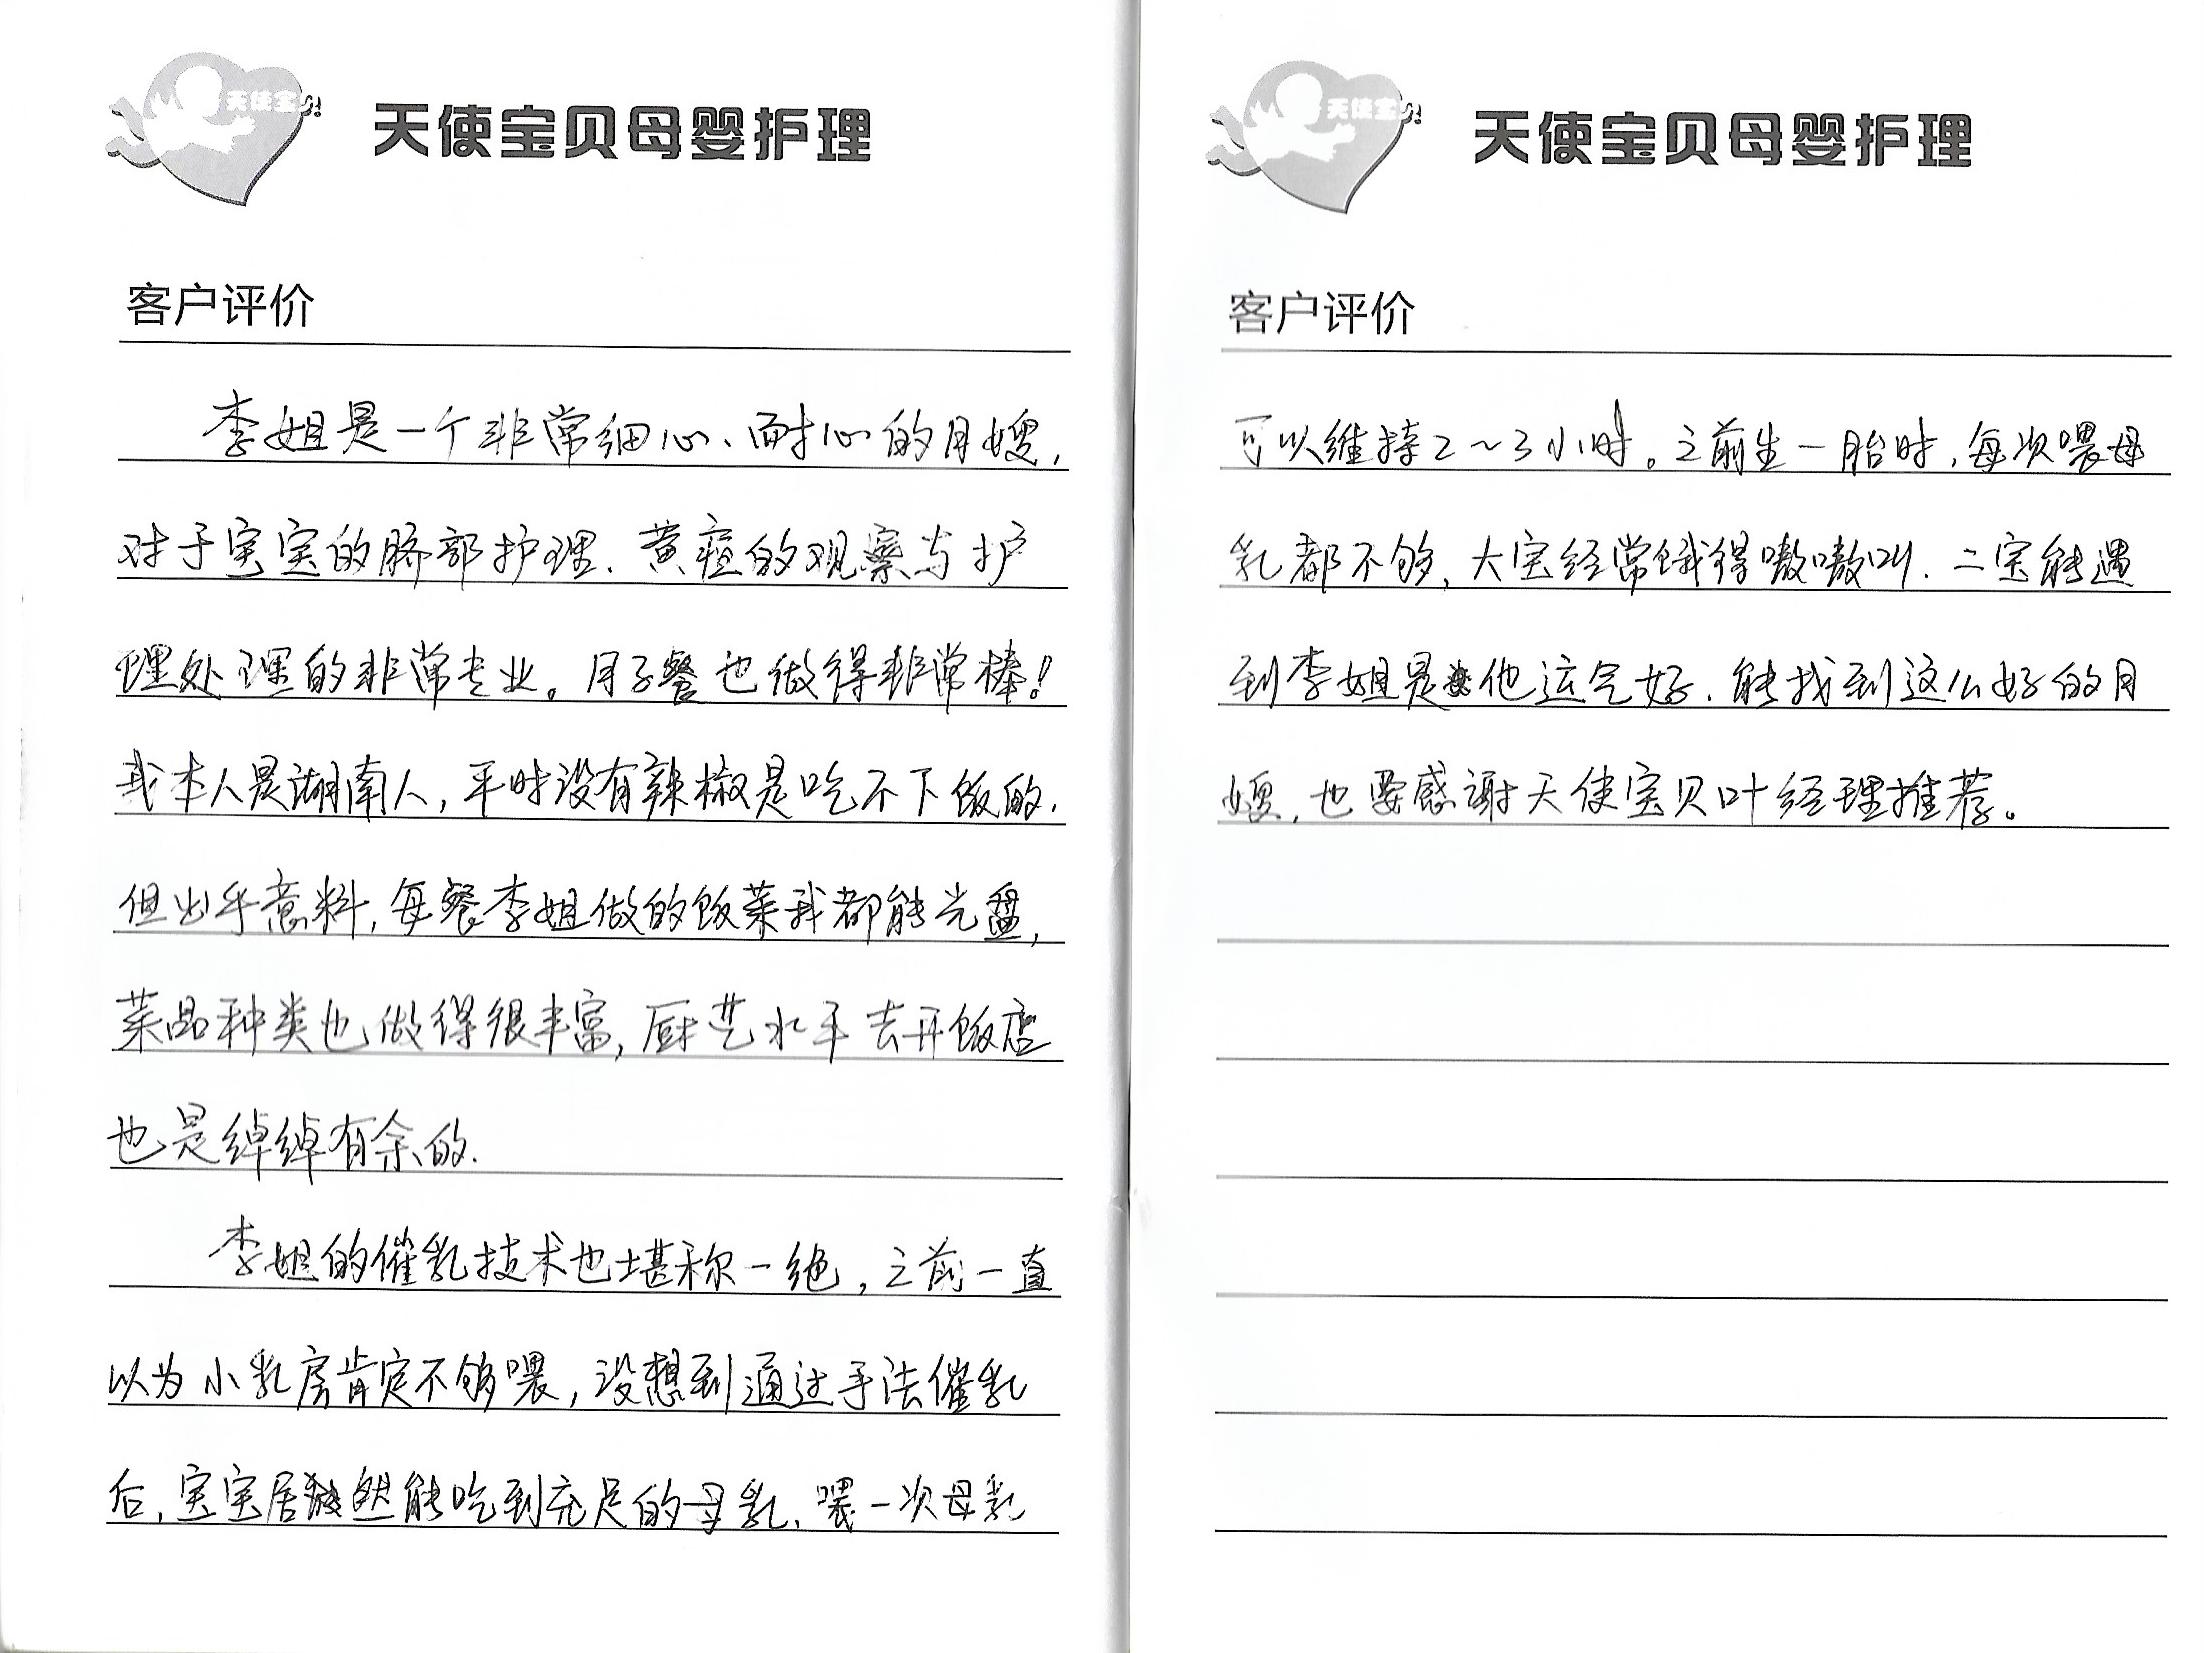 天使宝贝
天使宝贝母婴护理
客户评价
李姐是一个非常细心、耐心的月嫂，
对于宝宝的脐部护理、黄疸的观察与护
理处理的非常专业。月子餐也做得非常棒！
我本人是湖南人，平时没有辣椒是吃不下饭的.
但出乎意料，每餐李姐做的饭菜我都能光盘，
菜品种类也做得很丰富，厨艺水平去开饭店
也是绰绰有余的.
李姐的催乳技术也堪称一绝，之前一直
以为小乳房肯定不够喂，没想到通过手法催乳
后，宝宝居然能吃到充足的母乳、喂一次母乳
天使宝贝
天使宝贝母婴护理
客户评价
可以维持2～3小时。之前生一胎时，每次喂母
乳都不够，大宝经常饿得嗷嗷叫.二宝能遇
到李姐是他运气好.能找到这么好的月
嫂，也要感谢天使宝贝叶经理推荐。